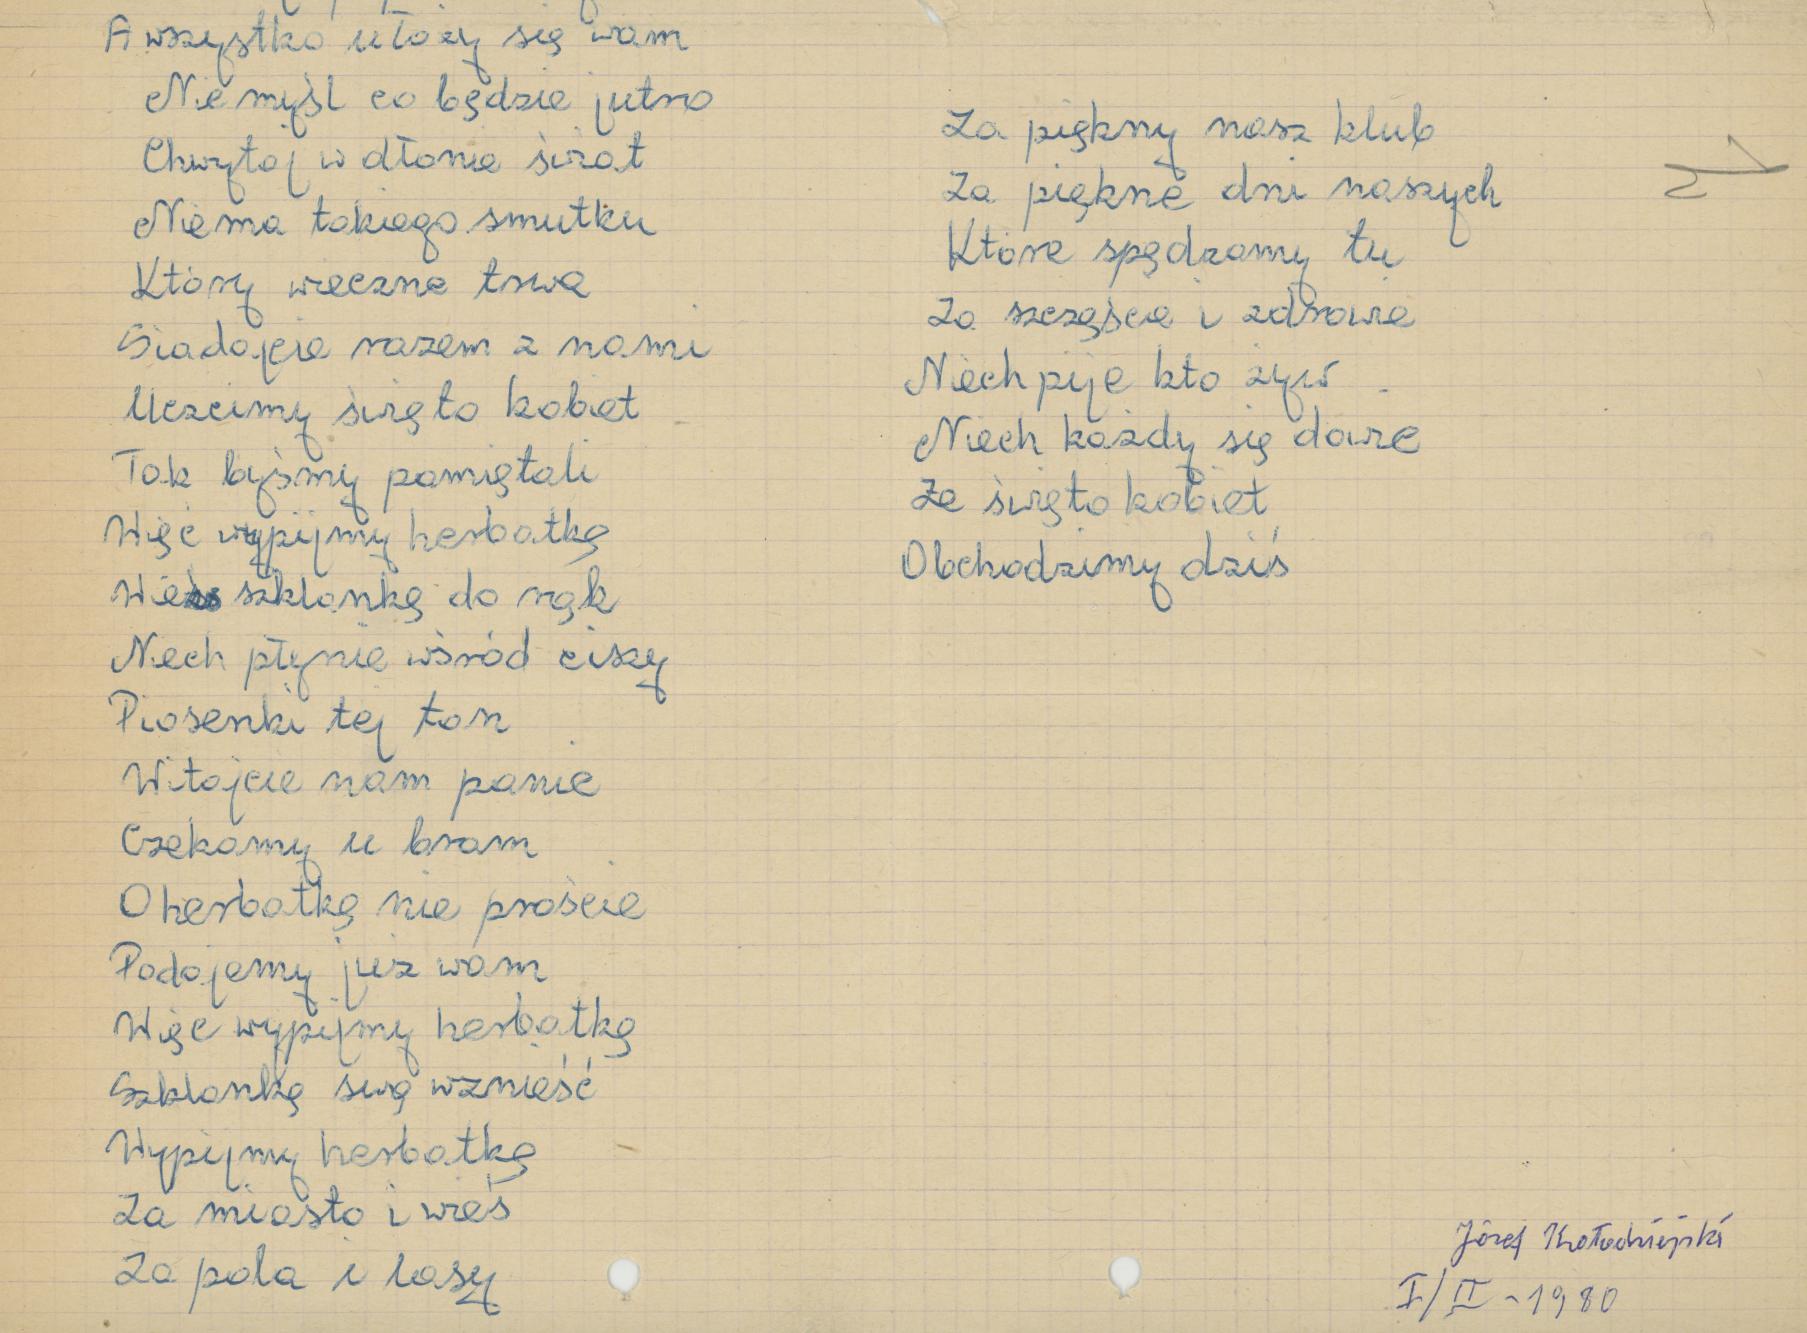 A wszystko ułoży się wam
Nie myśl co będzie jutro
Chwytaj w dłonie świat
Niema takiego smutku
Który wieczne trwa
Siadajcie razem z nami
Uczcimy święto kobiet
Tak byśmy pamiętali
Więc wypijmy herbatkę
szklankę do rąk
Niech płynie wśród ciszy
Piosenki tej ton
Witajcie nam panie
Czekamy u bram
O herbatkę nie proście
Podajemy już wam
Więc wypijmy herbatkę
Szklankę swą wznieść
Wypijmy herbatkę
Za miasto i wieś
Za pola i lasy
Za piękny nasz klub
Za piękne dni naszych
Które spędzamy tu
Za szczęście i zdrowie
Niech pije kto żyw
Niech każdy się dowie
Ze święto kobiet
Obchodzimy dziś
Józef Kołodziejski
I/II - 1980